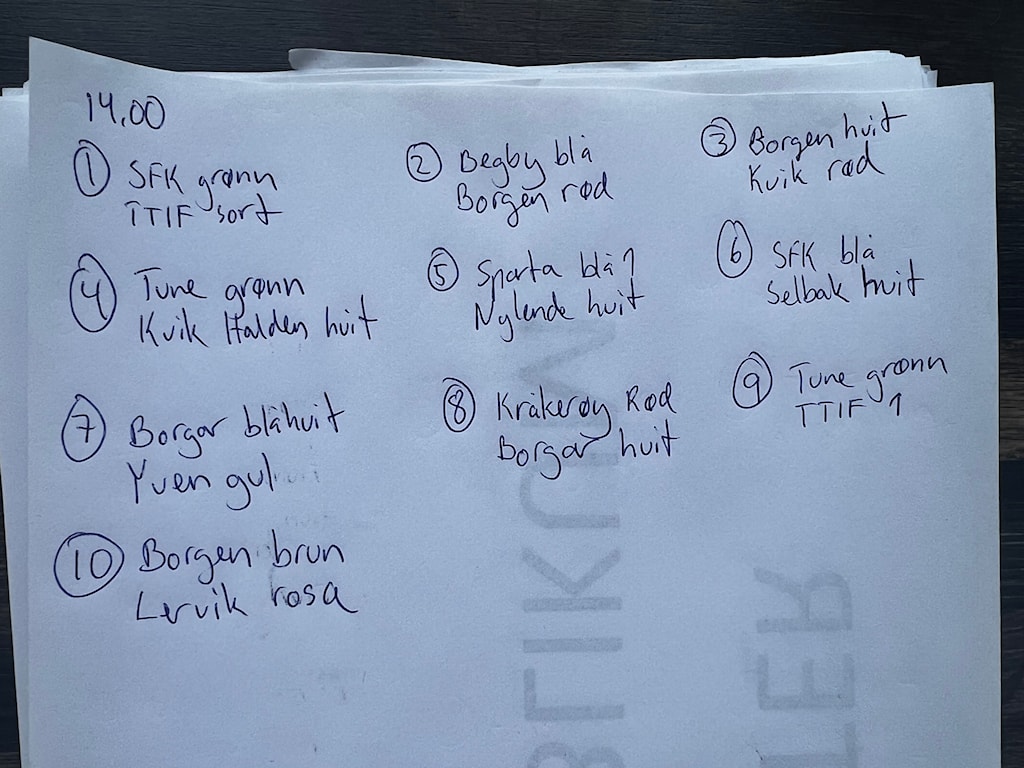 14.00
① SFK grønn
TTIF sort
② Begby blå
Borgen rød
③ Borgen hvit
Kvik rød
④ Tune grønn
Kvik Halden hvit
⑤ Sparta blå 1
Nylende hvit
⑥ SFK blå
Selbak hvit
⑦ Borgar blåhvit
Yven gul
⑧ Kråkerøy Rød
Borgar hvit
⑨ Tune grønn
TTIF 1
⑩ Borgen brun
Lervik rosa